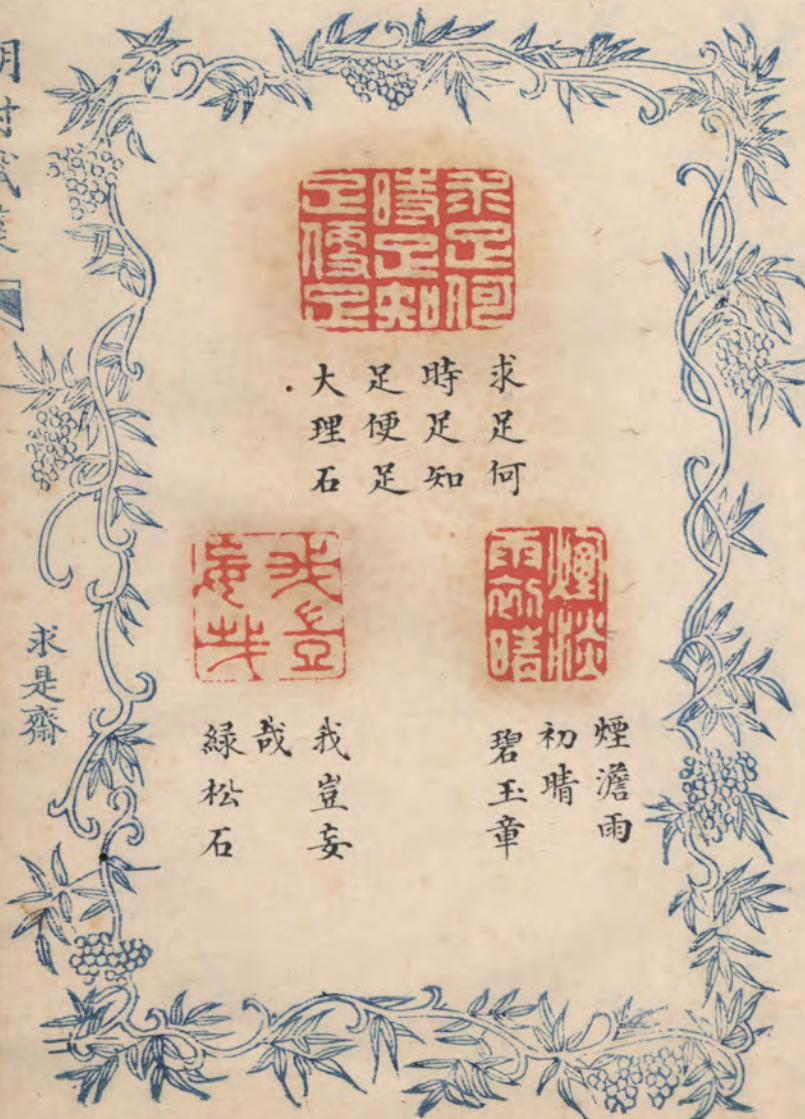 求足何
時足知
足便足
求足何
時足知
足便足
大理石
煙澹
雨初晴
煙澹雨
初晴
碧玉章
我豈
妄哉
我豈妄
哉
緑松石
求是齋